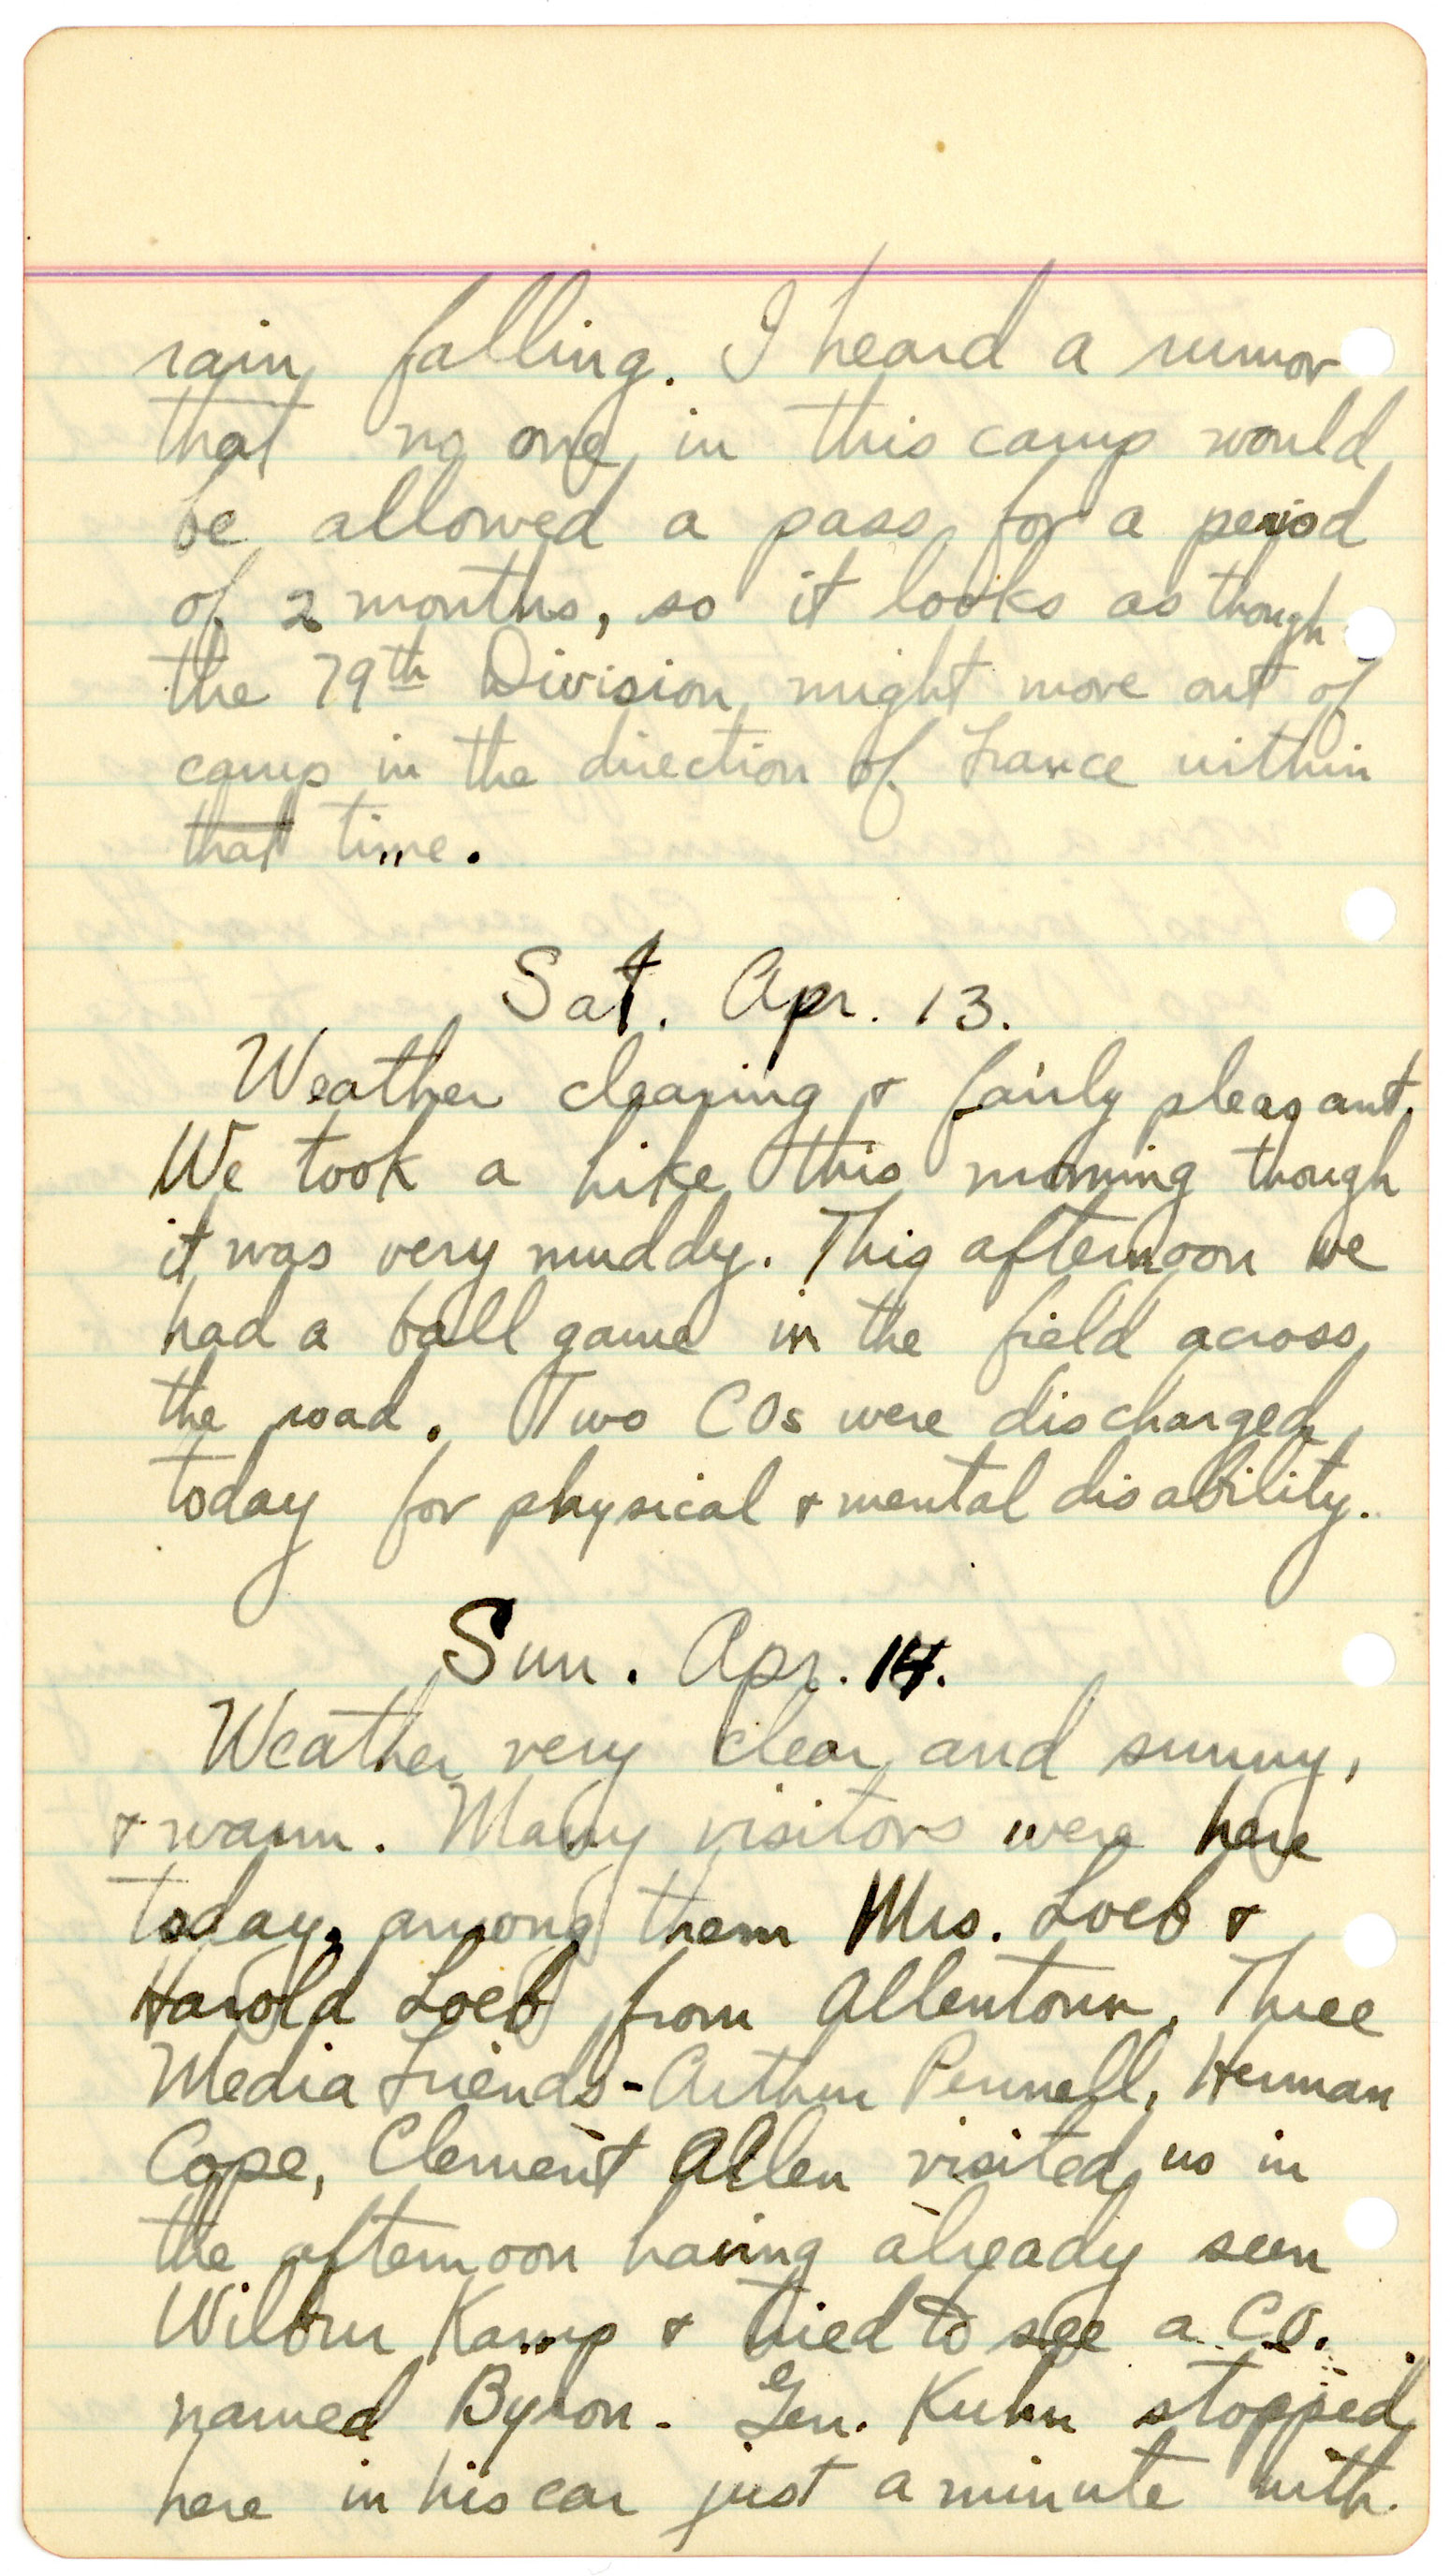 rain falling. I heard a rumor
that no one in this camp would
be allowed a pass for a period
of 2 months, so it looks as though
the 79th Division might move out of
camp in the direction of France within
that time.
Sat. Apr. 13.
Weather clearing & fairly pleasant.
We took a hike this morning though
it was very muddy. This afternoon we
had a ball game in the field across
the road. Two COs were discharged
today for physical & mental disability.
Sun. Apr. 14.
Weather very clear and sunny,
& warm. Many visitors were here
today, among them Mrs. Loeb &
Harold Loeb from Allentown. Three
Media Friends - Arthur Pennell, Herman
Cope, Clement Allen visited us in
the afternoon having already seen
Wilbur Kamp & tried to see a C.O.
named Byron. Gen. Kuhn stopped
here in his car just a minute with